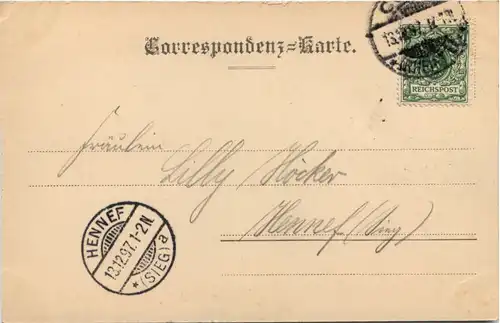 Correspondenz=Karte.
13.12.97.
REICHSPOST
Fräulein Lilly Höcker
Hennef (Sieg)
HENNEF
13.12.97.1-2N.
* (SIEG) a